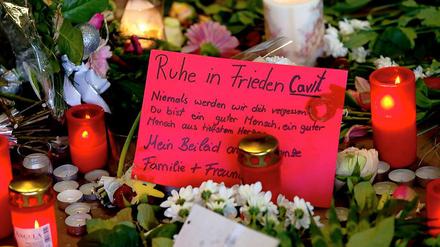 Ruhe in Frieden Cavit
Niemals werden wir dich vergessen
Du bist ein guter Mensch, ein guter
Mensch aus tiefstem Herzen
Mein Beileid an
Familie + Freunde